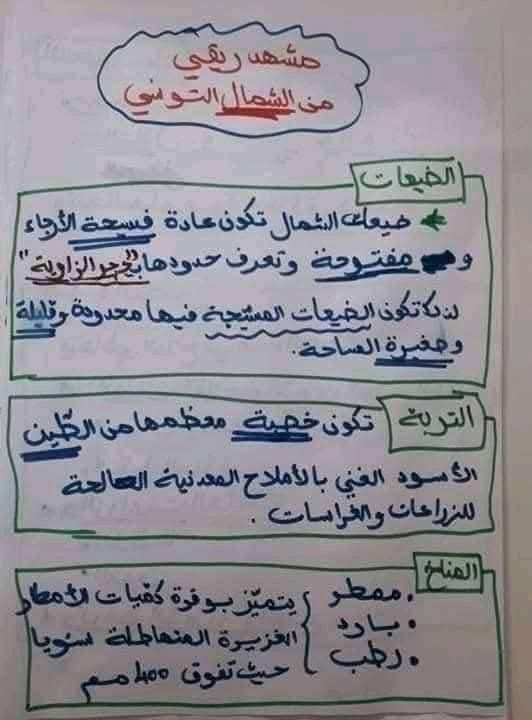 مشهد ريفي
من الشمال التونسي
الضيعات
ضيعات الشمال تكون عادة فسيحة الأرجاء
و مفتوحة وتعرف حدودها ب"حجر الزاوية"
لذا تكون الضيعات المسيّجة فيها محدودة وقليلة
وصغيرة المساحة.
التربة
تكون خصبة معظمها من الطّين
الأسود الغني بالأملاح المعدنية الصالحة
للزراعات والغراسات.
المناخ
. ممطر
. بارد
. رطب
يتميّز بوفرة كمّيات الأمطار
الغزيرة المتهاطلة سنويا
حيث تفوق 400 مم